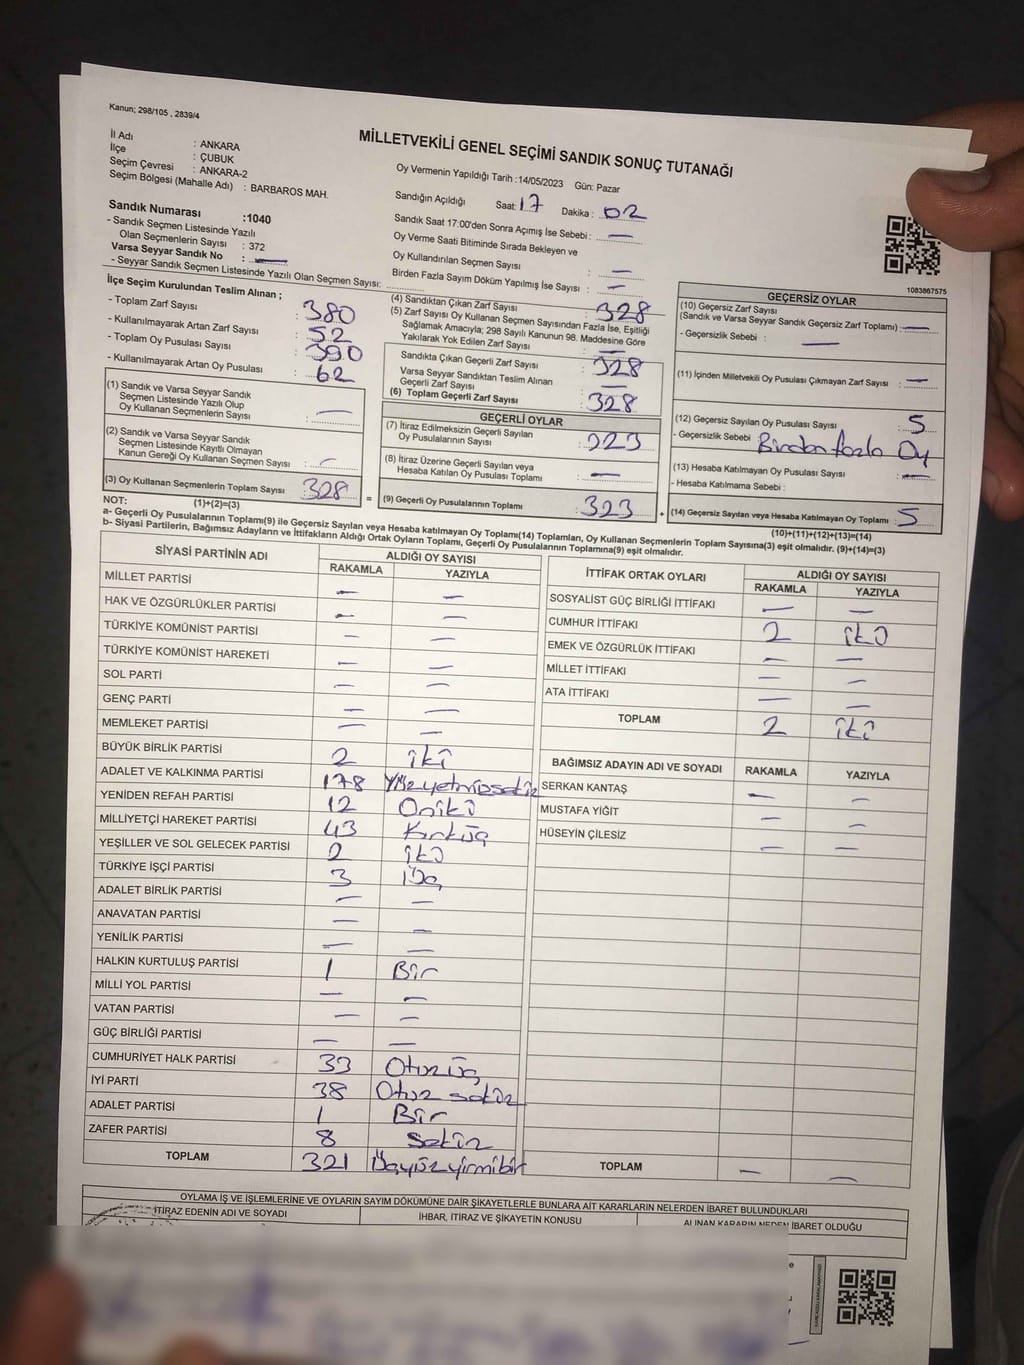 Kanun; 298/105 , 2839/4
MİLLETVEKİLİ GENEL SEÇİMİ SANDIK SONUÇ TUTANAĞI
İl Adı : ANKARA
İlçe : ÇUBUK
Seçim Çevresi : ANKARA-2
Seçim Bölgesi (Mahalle Adı) : BARBAROS MAH.
Sandık Numarası :1040
- Sandık Seçmen Listesinde Yazılı
Olan Seçmenlerin Sayısı : 372
Varsa Seyyar Sandık No : —
- Seyyar Sandık Seçmen Listesinde Yazılı Olan Seçmen Sayısı:
Oy Vermenin Yapıldığı Tarih :14/05/2023 Gün: Pazar
Sandığın Açıldığı Saat: 17 Dakika : 02
Sandık Saat 17:00'den Sonra Açımış İse Sebebi : —
Oy Verme Saati Bitiminde Sırada Bekleyen ve
Oy Kullandırılan Seçmen Sayısı : —
Birden Fazla Sayım Döküm Yapılmış İse Sayısı : —
1083867575
İlçe Seçim Kurulundan Teslim Alınan ;
- Toplam Zarf Sayısı : 380
- Kullanılmayarak Artan Zarf Sayısı : 52
- Toplam Oy Pusulası Sayısı : 390
- Kullanılmayarak Artan Oy Pusulası : 62
(1) Sandık ve Varsa Seyyar Sandık
Seçmen Listesinde Yazılı Olup
Oy Kullanan Seçmenlerin Sayısı : —
(2) Sandık ve Varsa Seyyar Sandık
Seçmen Listesinde Kayıtlı Olmayan
Kanun Gereği Oy Kullanan Seçmen Sayısı : —
(3) Oy Kullanan Seçmenlerin Toplam Sayısı : 328
(1)+(2)=(3)
(4) Sandıktan Çıkan Zarf Sayısı : 328
(5) Zarf Sayısı Oy Kullanan Seçmen Sayısından Fazla İse, Eşitliği
Sağlamak Amacıyla; 298 Sayılı Kanunun 98. Maddesine Göre
Yakılarak Yok Edilen Zarf Sayısı : —
Sandıkta Çıkan Geçerli Zarf Sayısı : 328
Varsa Seyyar Sandıktan Teslim Alınan
Geçerli Zarf Sayısı : —
(6) Toplam Geçerli Zarf Sayısı : 328
GEÇERLİ OYLAR
(7) İtiraz Edilmeksizin Geçerli Sayılan
Oy Pusulalarının Sayısı : 323
(8) İtiraz Üzerine Geçerli Sayılan veya
Hesaba Katılan Oy Pusulası Toplamı : —
= (9) Geçerli Oy Pusulalarının Toplamı : 323 +
GEÇERSİZ OYLAR
(10) Geçersiz Zarf Sayısı
(Sandık ve Varsa Seyyar Sandık Geçersiz Zarf Toplamı) : —
- Geçersizlik Sebebi : —
(11) İçinden Milletvekili Oy Pusulası Çıkmayan Zarf Sayısı : —
(12) Geçersiz Sayılan Oy Pusulası Sayısı : 5
- Geçersizlik Sebebi : Birden fazla Oy
(13) Hesaba Katılmayan Oy Pusulası Sayısı : —
- Hesaba Katılmama Sebebi :
(14) Geçersiz Sayılan veya Hesaba Katılmayan Oy Toplamı : 5
(10)+(11)+(12)+(13)=(14)
NOT:
a- Geçerli Oy Pusulalarının Toplamı(9) ile Geçersiz Sayılan veya Hesaba katılmayan Oy Toplamı(14) Toplamları, Oy Kullanan Seçmenlerin Toplam Sayısına(3) eşit olmalıdır. (9)+(14)=(3)
b- Siyasi Partilerin, Bağımsız Adayların ve İttifakların Aldığı Ortak Oyların Toplamı, Geçerli Oy Pusulalarının Toplamına(9) eşit olmalıdır.
SİYASİ PARTİNİN ADI ALDIĞI OY SAYISI
RAKAMLA YAZIYLA
MİLLET PARTİSİ — —
HAK VE ÖZGÜRLÜKLER PARTİSİ — —
TÜRKİYE KOMÜNİST PARTİSİ — —
TÜRKİYE KOMÜNİST HAREKETİ — —
SOL PARTİ — —
GENÇ PARTİ — —
MEMLEKET PARTİSİ — —
BÜYÜK BİRLİK PARTİSİ 2 iki
ADALET VE KALKINMA PARTİSİ 178 Yüzyetmişsekiz
YENİDEN REFAH PARTİSİ 12 Oniki
MİLLİYETÇİ HAREKET PARTİSİ 43 Kırküç
YEŞİLLER VE SOL GELECEK PARTİSİ 2 iki
TÜRKİYE İŞÇİ PARTİSİ 3 Üç
ADALET BİRLİK PARTİSİ — —
ANAVATAN PARTİSİ — —
YENİLİK PARTİSİ — —
HALKIN KURTULUŞ PARTİSİ 1 Bir
MİLLİ YOL PARTİSİ — —
VATAN PARTİSİ — —
GÜÇ BİRLİĞİ PARTİSİ — —
CUMHURİYET HALK PARTİSİ 33 Otuzüç
İYİ PARTİ 38 Otuz sekiz
ADALET PARTİSİ 1 Bir
ZAFER PARTİSİ 8 Sekiz
TOPLAM 321 Üçyüzyirmibir
İTTİFAK ORTAK OYLARI ALDIĞI OY SAYISI
RAKAMLA YAZIYLA
SOSYALİST GÜÇ BİRLİĞİ İTTİFAKI — —
CUMHUR İTTİFAKI 2 iki
EMEK VE ÖZGÜRLÜK İTTİFAKI — —
MİLLET İTTİFAKI — —
ATA İTTİFAKI — —
TOPLAM 2 iki
BAĞIMSIZ ADAYIN ADI VE SOYADI RAKAMLA YAZIYLA
SERKAN KANTAŞ — —
MUSTAFA YİĞİT — —
HÜSEYİN ÇİLESİZ — —
TOPLAM — —
OYLAMA İŞ VE İŞLEMLERİNE VE OYLARIN SAYIM DÖKÜMÜNE DAİR ŞİKAYETLERLE BUNLARA AİT KARARLARIN NELERDEN İBARET BULUNDUKLARI
İTİRAZ EDENİN ADI VE SOYADI İHBAR, İTİRAZ VE ŞİKAYETİN KONUSU ALINAN KARARIN NEDEN İBARET OLDUĞU